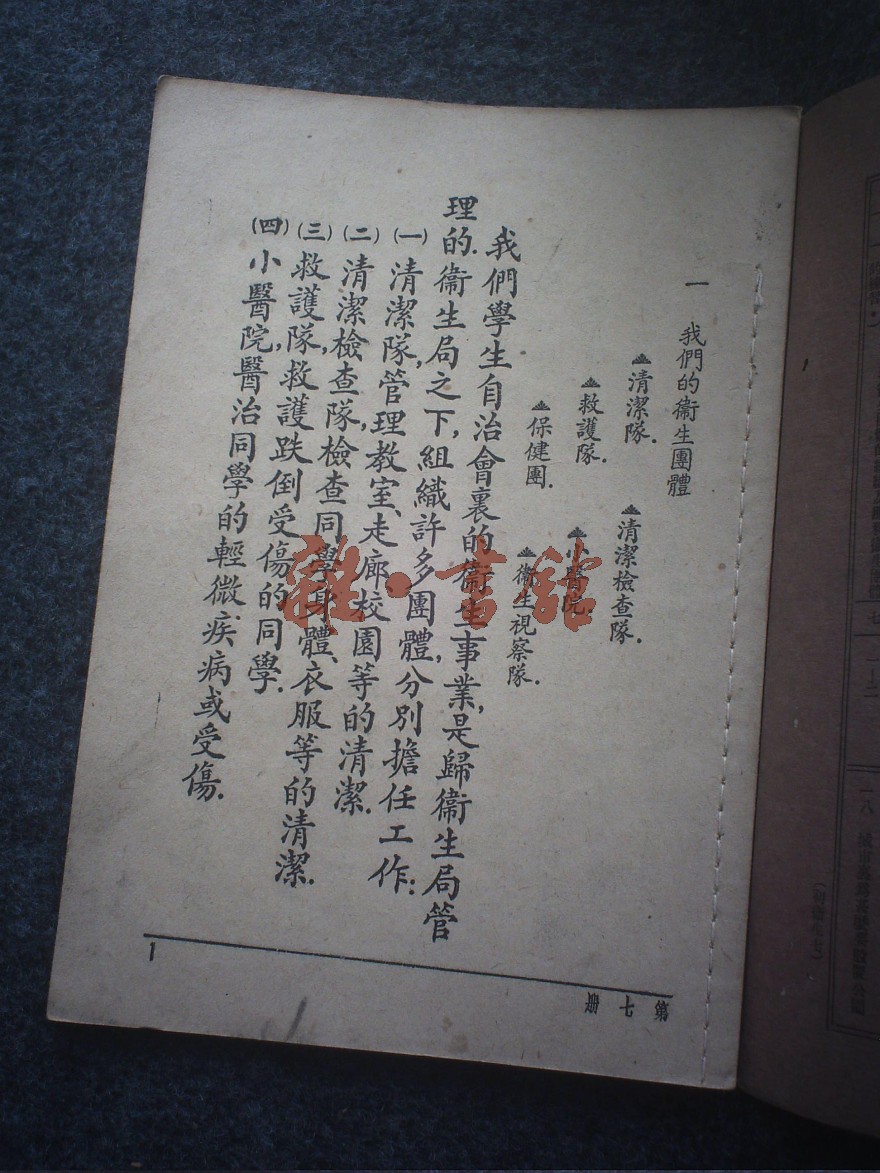 一 我們的衞生團體
▲清潔隊. ▲清潔檢查隊.
▲救護隊. ▲小醫院.
▲保健團. ▲衞生視察隊.
我們學生自治會裏的衞生事業,是歸衞生局管
理的.衞生局之下,組織許多團體,分別擔任工作:
(一)清潔隊,管理教室、走廊、校園等的清潔.
(二)清潔檢查隊,檢查同學身體、衣服等的清潔.
(三)救護隊,救護跌倒受傷的同學.
(四)小醫院,醫治同學的輕微疾病或受傷.
第七册
1
雜·書館